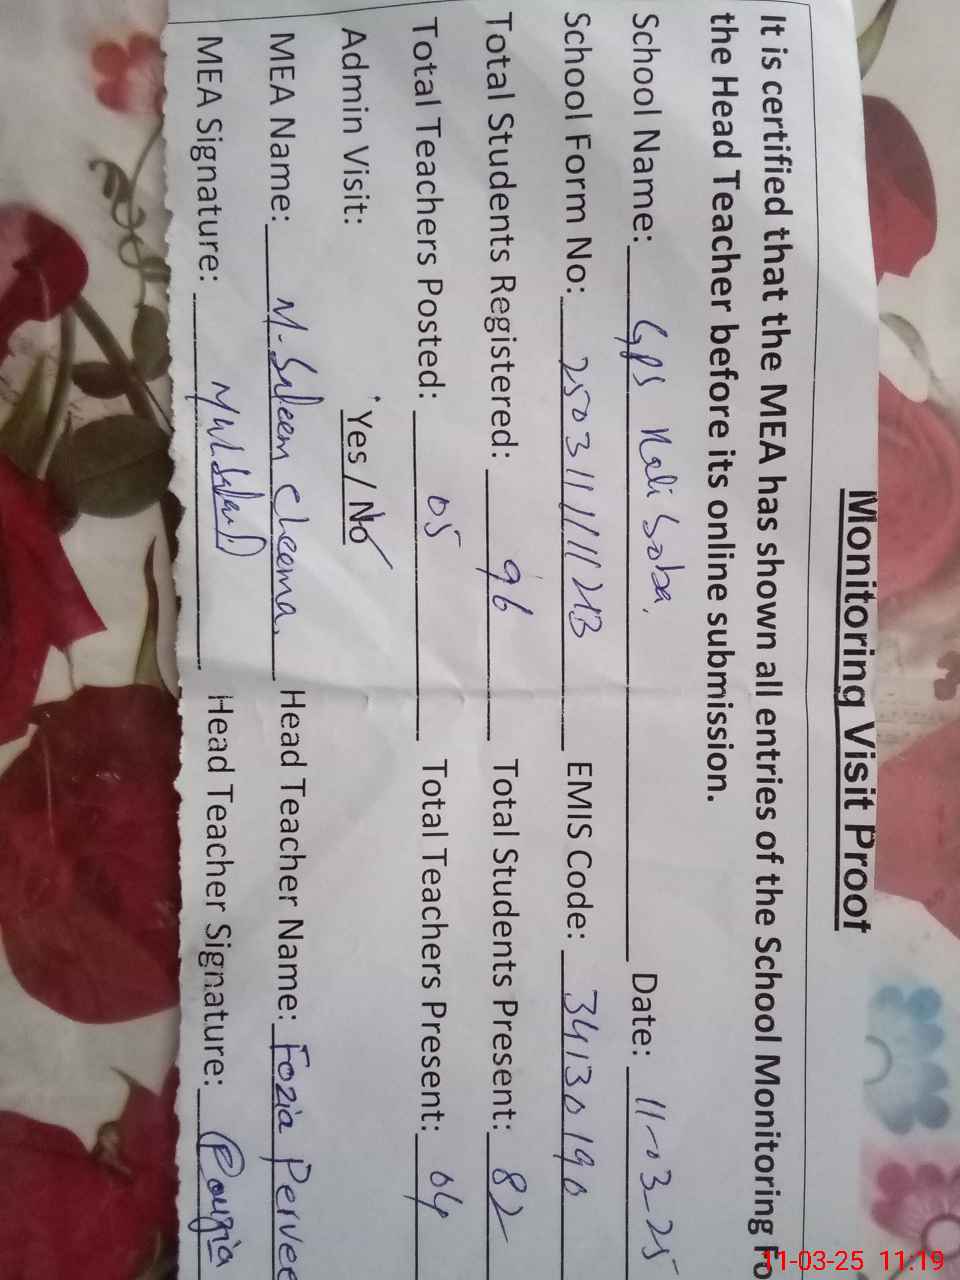 Monitoring Visit Proof
It is certified that the MEA has shown all entries of the School Monitoring Fo
the Head Teacher before its online submission.
School Name: GPS Kali Soba. Date: 11-03-25
School Form No: EMIS Code: 34130190
Total Students Registered: 96 Total Students Present: 82
Total Teachers Posted: 05 Total Teachers Present: 04
Admin Visit: Yes / No
MEA Name: M. Saleem Cheema. Head Teacher Name: Fozia Pervee
MEA Signature: Head Teacher Signature: Fouzia
11-03-25 11:19